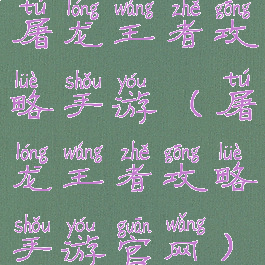 tú lóng wáng zhě gōng
屠龙王者攻
lüè shǒu yóu ( tú
略手游（屠
lóng wáng zhě gōng lüè
龙王者攻略
shǒu yóu guān wǎng
手游官网）